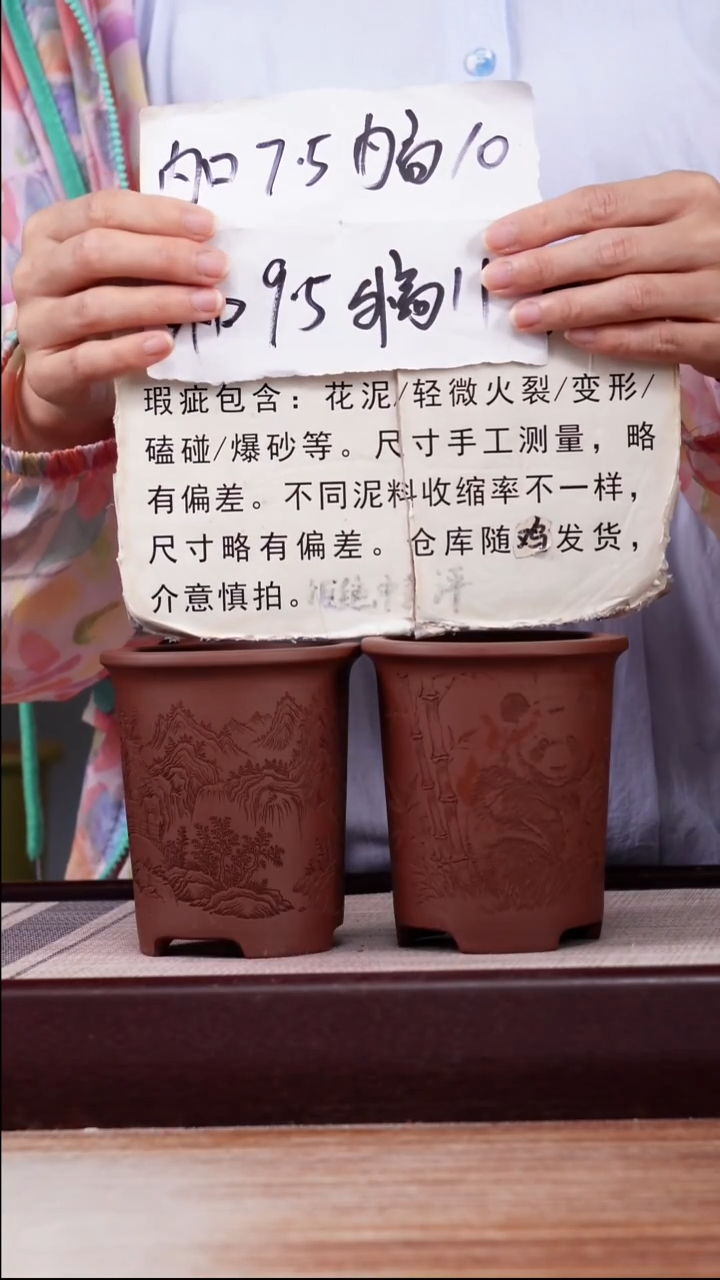 内口7.5内高10
外口9.5外高11
瑕疵包含：花泥/轻微火裂/变形/
磕碰/爆砂等。尺寸手工测量，略
有偏差。不同泥料收缩率不一样，
尺寸略有偏差。仓库随鸡发货，
介意慎拍。